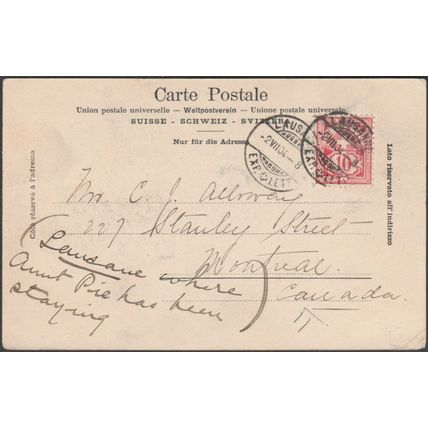 Carte Postale
Union postale universelle – Weltpostverein – Unione postale universale
SUISSE - SCHWEIZ - SVIZZERA
Nur für die Adresse
Côté réservé à l'adresse
Lato riservato all'indirizzo
LAUSA
-2 VII 04 - 8
EXP. LETT.
LAUSANNE
-2 VII 04
EXP. LETT
10
Mr. C. J. Alloway
227 Stanley Street
Montreal
Canada
(Lausane where
Aunt Pie has been
staying)